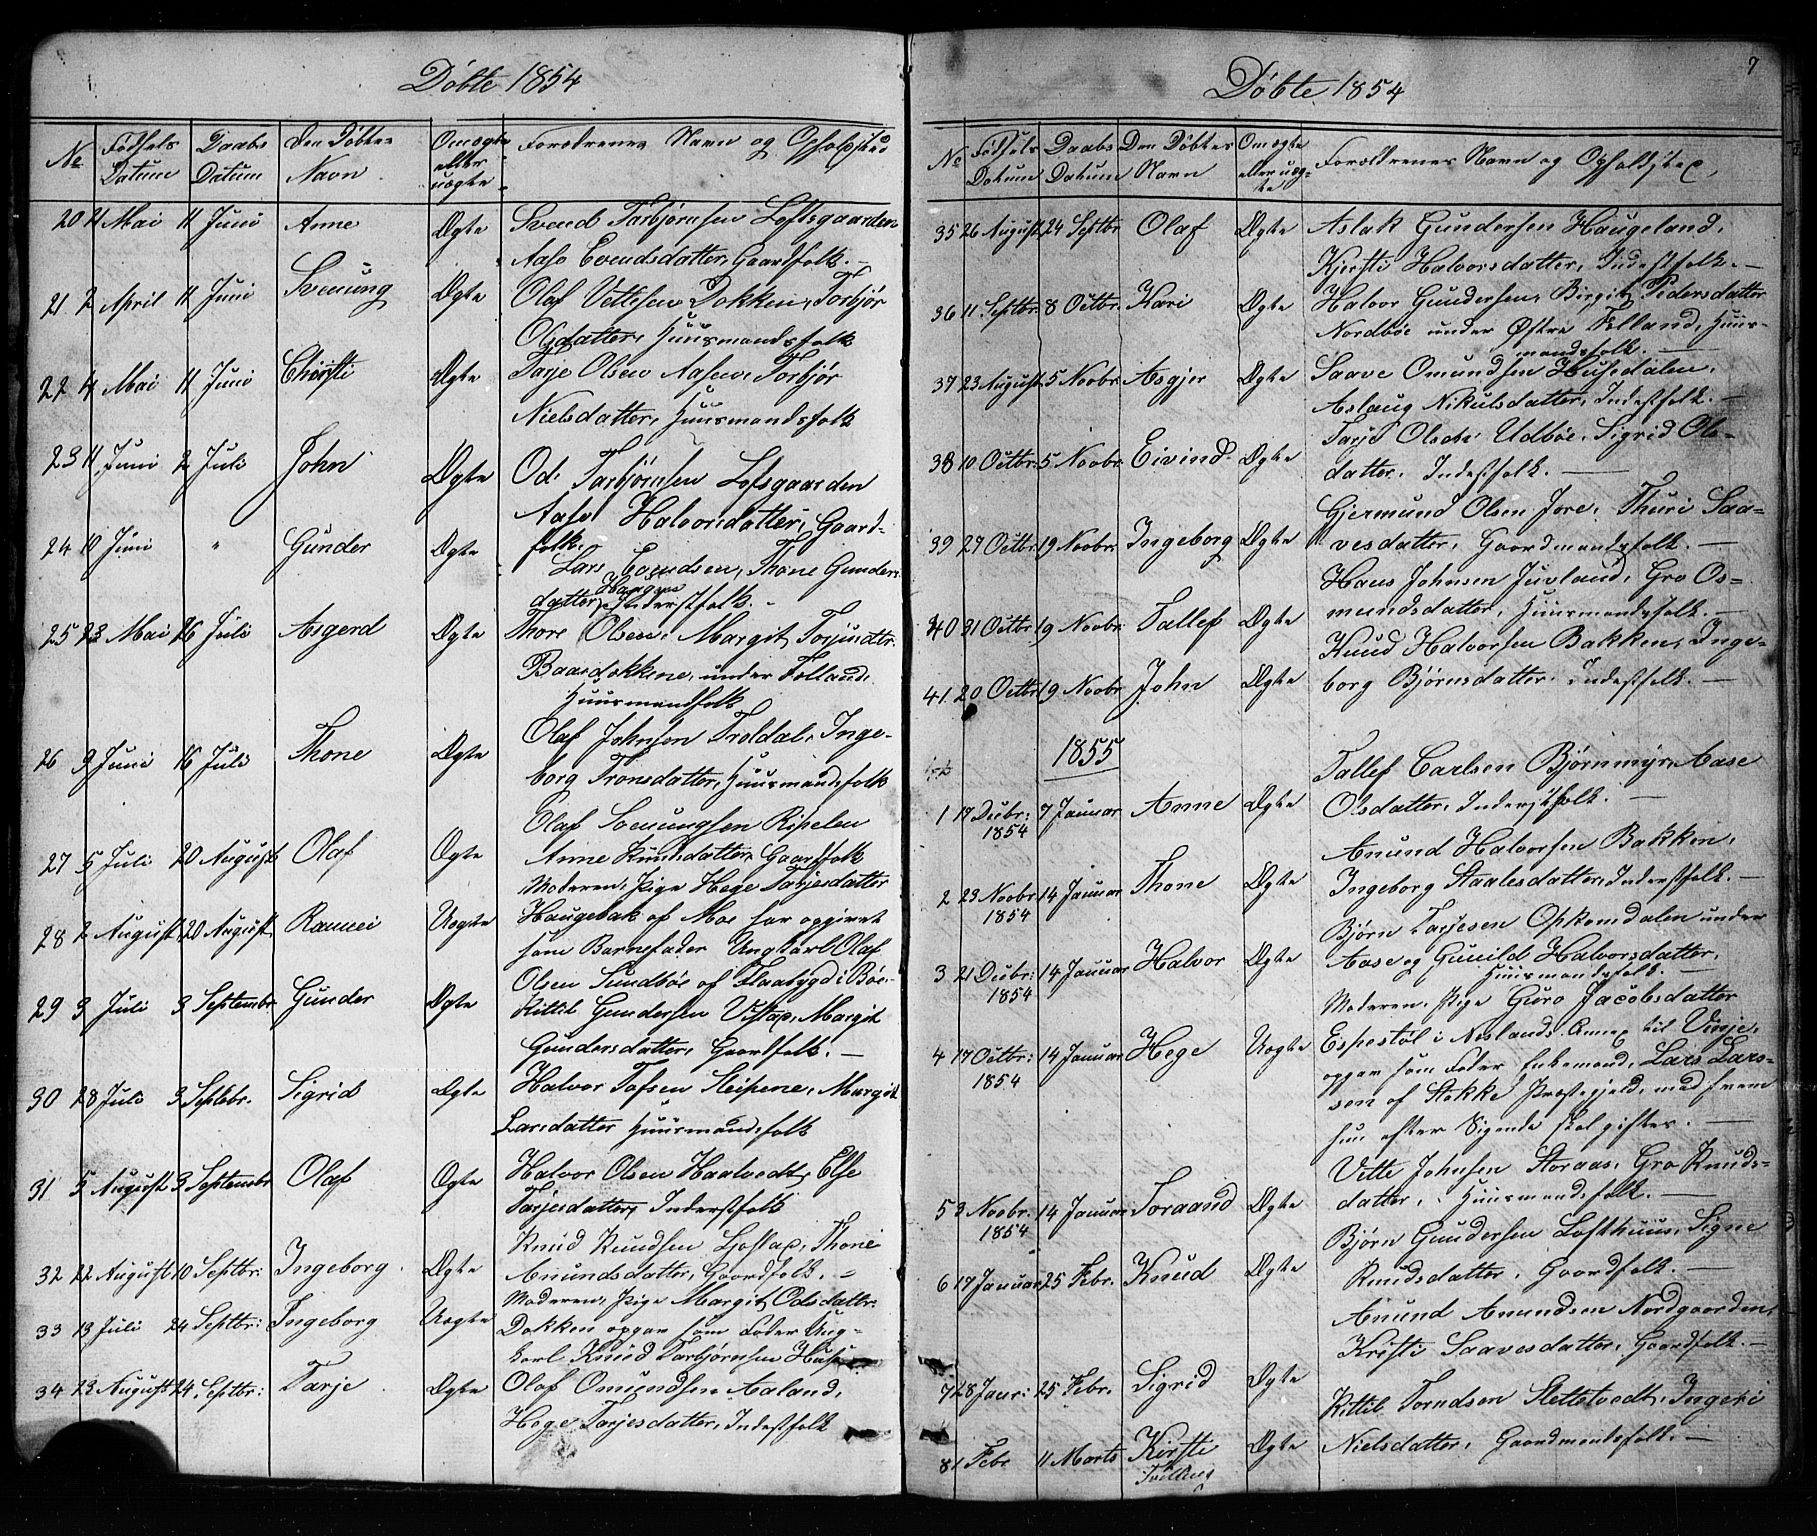 Döbte 1854
No Födsels Datum Daabs Datum Den Döbtes Navn Om ægte eller uægte Forældrenes Navn og Opholdssted
20 4 Mai 11 Juni Anne Ægte Svend Tarbjørnsen Loftsgaarden
Aase Evendsdatter, Gaardfolk.
21 2 April 11 Juni Svenung Ægte Olaf Vettesen Dokken, Torbjør
Olsdatter, Huusmandsfolk
22 4 Mai 11 Juni Christi Ægte Tarje Olsen Aasen, Torbjør
Nielsdatter, Huusmandsfolk
23 11 Juni 2 Juli John Ægte Od. Tarbjørnsen Loftsgaarden
Aase Halvorsdatter, Gaard-
folk.
24 10 Juni " Gunder Ægte Lars Evendsen, Thone Gunders
datter, Inderstfolk.
25 23 Mai 16 Juli Asgerd Ægte Thore Olsen, Margit Torjusdtr.
Baardokkene, under Felland,
Huusmandfolk
26 9 Juni 16 Juli Thone Ægte Olaf Johnsen Troldal, Inge-
borg Tronsdatter, Huusmandsfolk
27 5 Juli 20 August Olaf Ægte Olaf Svenungsen Ripelen
Anne Knudsdatter, Gaardfolk
28 2 August 20 August Ramei Uægte Moderen, Pige Hege Tarjesdatter
Haugebak af Moe har opgivet
som Barnefader Ungkarl Olaf
Olsen Sundböe af Flaabygd i Böe.
29 3 Juli 3 Septembr Gunder Ægte Kittil Gundersen Vistad, Margit
Gundersdatter, Gaardfolk.
30 28 Juli 3 Septbr. Sigrid Ægte Halvor Tofsen Neipene, Margit
Larsdatter Huusmandsfolk
31 5 August 3 Septembr Olaf Ægte Halvor Olsen Haatvedt, Else
Tarjesdatter, Inderstfolk
32 22 August 10 Septbr: Ingeborg Ægte Knud Knudsen Ljostad, Thone
Amundsdatter, Gaardfolk.
33 13 Juli 24 Septbr: Ingeborg Uægte Moderen, Pige Margit Odsdattr.
Dokken opgav som Fader Ung-
karl Knud Tarbjørnsen Huse
34 23 August 24 Septbr: Tarje Ægte Olaf Omundsen Aaland,
Hege Tarjesdatter, Inderstfolk
7
Döbte 1854
No Fødsels Datum Daabs Datum Den Döbtes Navn Om ægte eller uæg-te Forældrenes Navn og Opholdsted
35 26 August 24 Septbr Olaf Ægte Aslak Gundersen Haugeland,
Kjersti Halvorsdatter, Inderstfolk.
36 11 Septbr: 8 Octbr. Kari Ægte Halvor Gundersen, Birgit Pedersdatter
Nordböe under Østre Felland, Huus-
mandsfolk.
37 23 August 5 Novbr. Asgjer Ægte Saave Omundsen Husedalen,
Aslaug Nikulsdatter, Inderstfolk.
38 10 Octbr. 5 Novbr. Eivind Ægte Tarje Olsen Udböe, Sigrid Ols-
datter, Inderstfolk.
39 27 Octbr. 19 Novbr. Ingeborg Ægte Gjermund Olsen Jore, Thuri Saa-
vesdatter, Gaardmandsfolk.
40 31 Octbr 19 Novbr Tallef Ægte Hans Johnsen Juvland, Gro Os-
mundsdatter, Huusmandsfolk.
41 20 Octbr 19 Novbr John Ægte Knud Halvorsen Bakken, Inge-
borg Bjørnsdatter, Inderstfolk.
1855
1 17 Decbr: 1854 7 Januar Anne Ægte Tallef Carlsen Bjørnmyr, Aase
Olsdatter, Inderstfolk.
2 23 Novbr 1854 14 Januar Thone Ægte Anund Halvorsen Bakken,
Ingeborg Staalesdatter, Inderstfolk.
3 21 Decbr: 1854 14 Januar Halvor Ægte Bjørn Tarjesen Opkomdalen under
Aase og Gunild Halvorsdatter,
Huusmandsfolk.
4 17 Octbr: 1854 14 Januar Hege Uægte Moderen, Pige Guro Jacobsdatter
Espestöl i Neslands Annex til Vinje,
opgav som Fader Enkemand, Lars Lars-
sen af Stokke Præstegjeld, med hvem
hun efter Sigende skal giftes.
5 3 Novbr. 1854 14 Januar Toraand Ægte Vette Johnsen Storaas, Gro Knuds-
datter, Huusmandsfolk.
6 17 Januar 25 Febr. Knud Ægte Bjørn Gundersen Lofthuus, Signe
Knudsdatter, Gaardfolk.
7 28 Janr: 25 Febr. Sigrid Ægte Anund Anundsen Nordgaarden,
Kristi Saavesdatter, Gaardfolk.
8 1 Febr 11 Marts Kirsti Tvilling Ægte Kittil Torndsen Slettetvedt, Ingeri
Nielsdatter, Gaardmandsfolk.